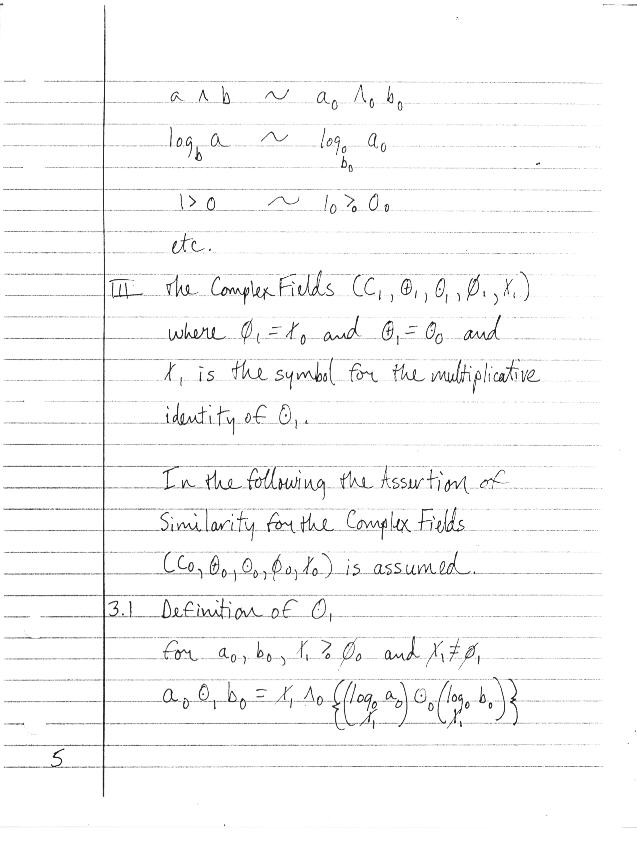 a ∧ b ~ a₀ ∧₀ b₀
log_b a ~ log₀_b₀ a₀
1 > 0 ~ 1₀ >₀ 0₀
etc.
III The Complex Fields (C₁, ⊕₁, ⊙₁, ∅₁, X₁)
where ∅₁ = X₀ and ⊕₁ = ⊙₀ and
X₁ is the symbol for the multiplicative
identity of ⊙₁.
In the following the Assertion of
Similarity for the Complex Fields
(C₀, ⊕₀, ⊙₀, ∅₀, X₀) is assumed.
3.1 Definition of ⊙₁
for a₀, b₀, X₁ >₀ ∅₀ and X₁ ≠ ∅₁
a₀ ⊙₁ b₀ = X₁ ∧₀ {(log₀_X₁ a₀) ⊙₀ (log₀_X₁ b₀)}
5